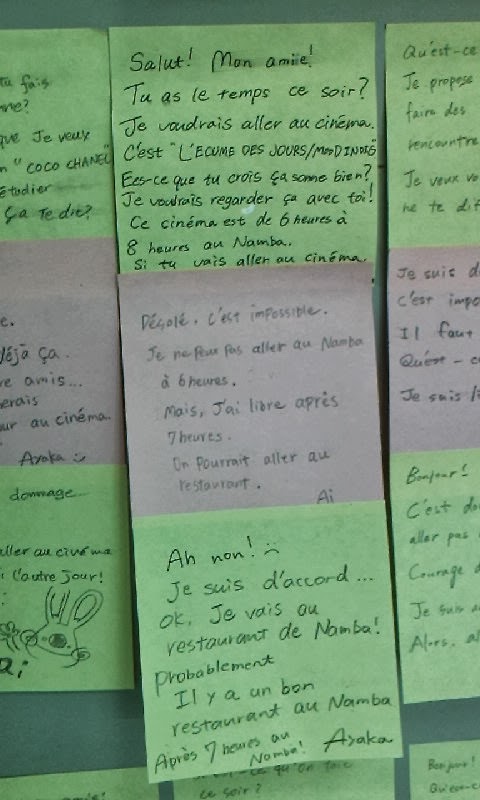 tu fais
que Je veux
"COCO CHANEL"
étudier
Ça te dit?
déjà ça.
amis...
au cinéma.
Asaka
dommage...
aller au cinéma
l'autre jour!
Salut! Mon amiie!
Tu as le temps ce soir?
Je voudrais aller au cinéma.
C'est "L'ECUME DES JOURS/MOOD INDIG
Ees-ce que tu crois ça sonne bien?
Je voudrais regarder ça avec toi!
Ce cinéma est de 6 heures à
8 heures au Namba.
Si tu vais aller au cinéma
Désolé. C'est impossible.
Je ne peux pas aller au Namba
à 6 heures.
Mais, J'ai libre après
7 heures.
On pourrait aller au
restaurant.
Ai
Ah non!
Je suis d'accord...
ok. Je vais au
restaurant de Namba!
Probablement
Il y a un bon
restaurant au Namba
Après 7 heures au
Namba! Asaka
ce soir?
Qu'est-ce
Je propose
faire des
rencontre
Je veux
ne te
Je suis
C'est
Il faut
Je suis
Bonjour!
C'est
aller pas
Courage
Je suis
Alors,
Bonjour!